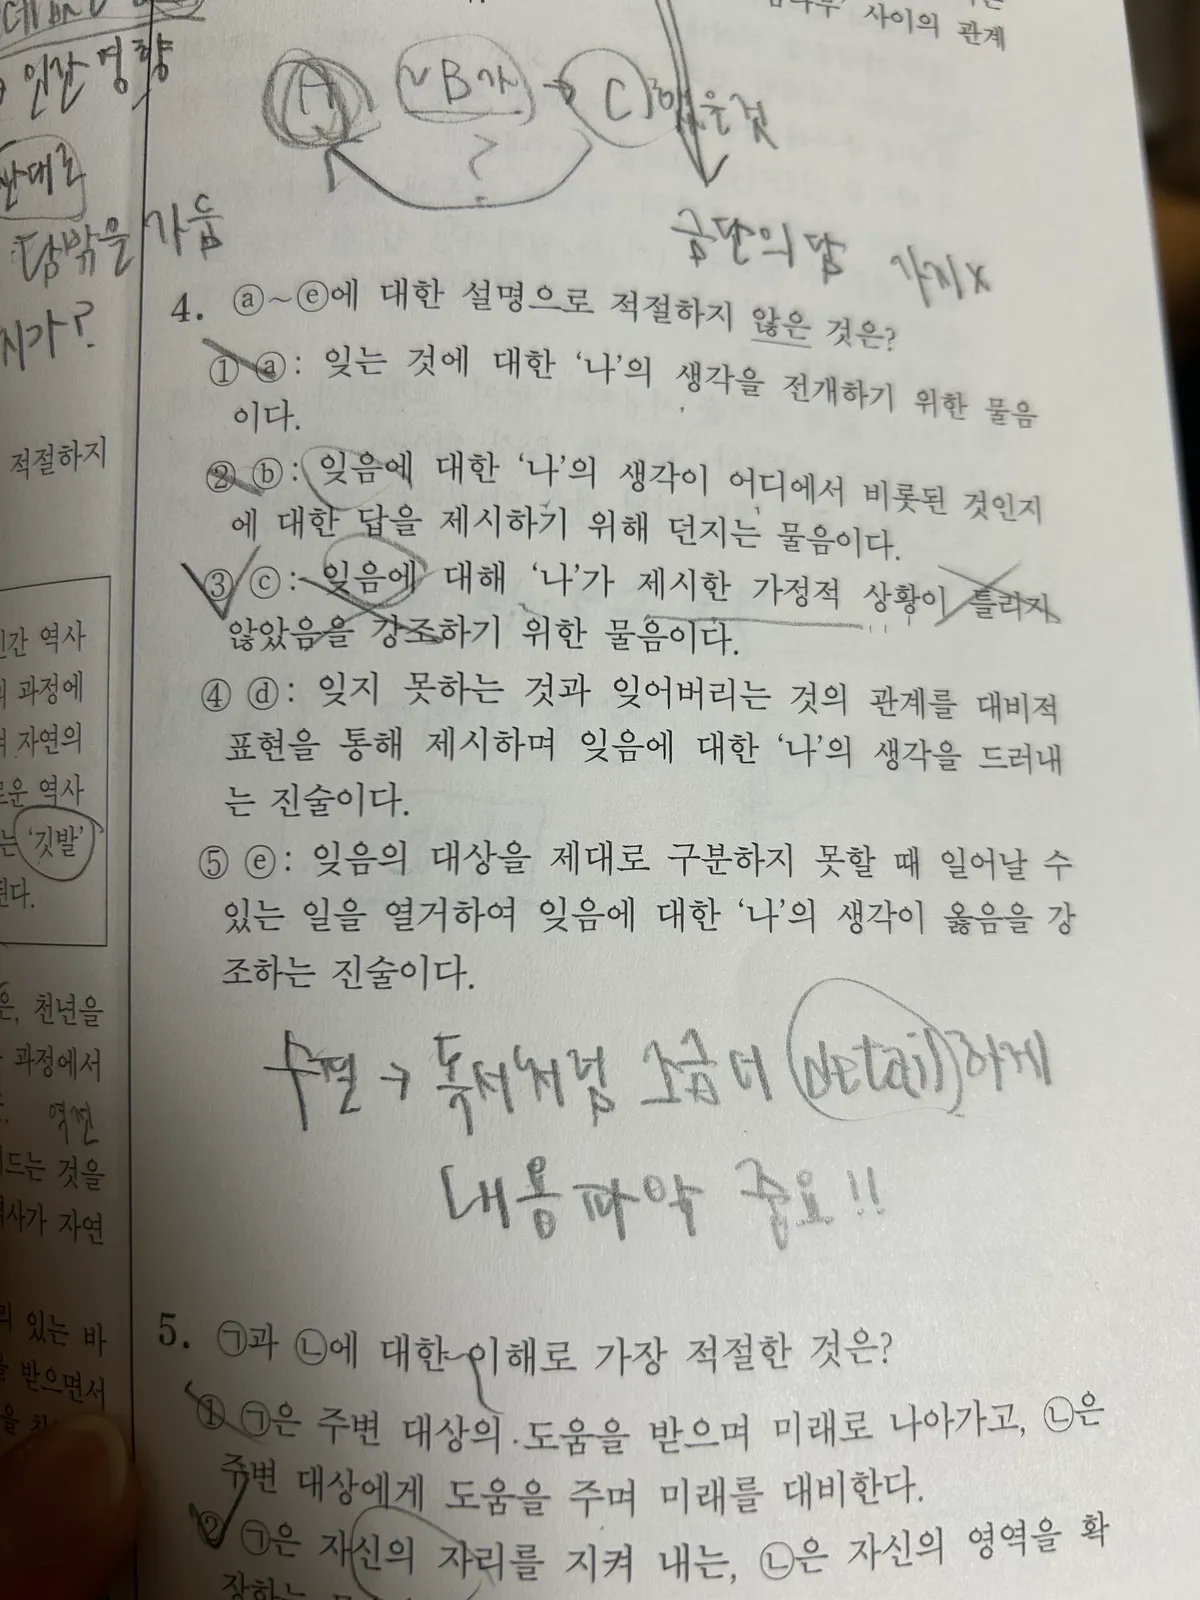 사이의 관계
인간 영향
A
B가 → C
했은것
?
반대로
담밖을 가둠
금단의 담 가지x
지가?
4. ⓐ~ⓔ에 대한 설명으로 적절하지 않은 것은?
① ⓐ: 잊는 것에 대한 ‘나’의 생각을 전개하기 위한 물음
이다.
② ⓑ: 잊음에 대한 ‘나’의 생각이 어디에서 비롯된 것인지
에 대한 답을 제시하기 위해 던지는 물음이다.
③ ⓒ: 잊음에 대해 ‘나’가 제시한 가정적 상황이 틀리지
않았음을 강조하기 위한 물음이다.
④ ⓓ: 잊지 못하는 것과 잊어버리는 것의 관계를 대비적
표현을 통해 제시하며 잊음에 대한 ‘나’의 생각을 드러내
는 진술이다.
⑤ ⓔ: 잊음의 대상을 제대로 구분하지 못할 때 일어날 수
있는 일을 열거하여 잊음에 대한 ‘나’의 생각이 옳음을 강
조하는 진술이다.
수필 → 독서처럼 조금 더 detail하게
내용파악 중요!!
5. ㉠과 ㉡에 대한 이해로 가장 적절한 것은?
① ㉠은 주변 대상의 도움을 받으며 미래로 나아가고, ㉡은
주변 대상에게 도움을 주며 미래를 대비한다.
② ㉠은 자신의 자리를 지켜 내는, ㉡은 자신의 영역을 확
장하는
적절하지
인간 역사
과정에
자연의
역사
는 ‘깃발’
된다.
은, 천년을
과정에서
역전
드는 것을
역사가 자연
있는 바
받으면서